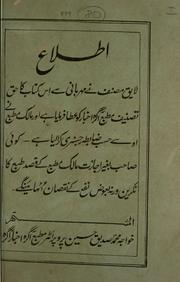 اطلاع
لایق مصنف نے مہربانی سے اس کتاب کا حق
تصنیف مطبع آگرہ اخبار کو عطا فرمایا ہے اور مالک مطبع نے
اوسے حسب ضابطہ رجسٹری کرا لیا ہے۔ کوئی
صاحب بغیر اجازت مالک مطبع کے قصد طبع کا
نکریں ورنہ بعوض نفع کے نقصان اُٹھائینگے۔
المشتہر
خواجہ محمد صدیق حسین پروپرائٹر مطبع آگرہ اخبار آگرہ